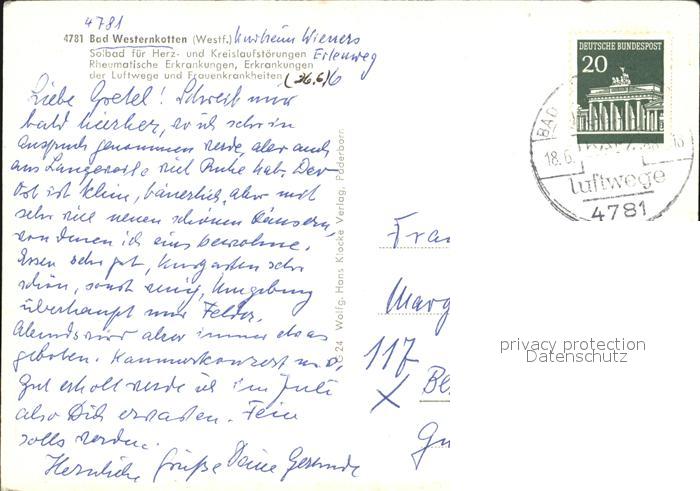 4781
4781 Bad Westernkotten (Westf.) Kurheim Wieners
Solbad für Herz- und Kreislaufstörungen Erlenweg
Rheumatische Erkrankungen, Erkrankungen
der Luftwege und Frauenkrankheiten (26.6) 6
Liebe Gretel! Schreib nur
bald hierher, wo ich schon in
Anspruch genommen werde, aber auch
aus Langeweile viel Ruhe hab. Der
Ort ist klein, bäuerlich, aber mit
sehr viel neuen schönen Häusern,
von denen ich eins bewohne.
Essen sehr gut, Kurgarten sehr
schön, sonst ruhig, Umgebung
überhaupt nur Felder.
Abends wird aber immer etwas
geboten. Kammerkonzert u.s.
Gut erholt werde ich im Juli
also Dich erwarten. Fein
solls werden.
Herzliche Grüße Deine Gertrude
C 24 Wolfg. Hans Klocke Verlag, Paderborn
DEUTSCHE BUNDESPOST
20
BAD
18.6.
luftwege
4781
Frau
Marg
117
Be
privacy protection
Datenschutz